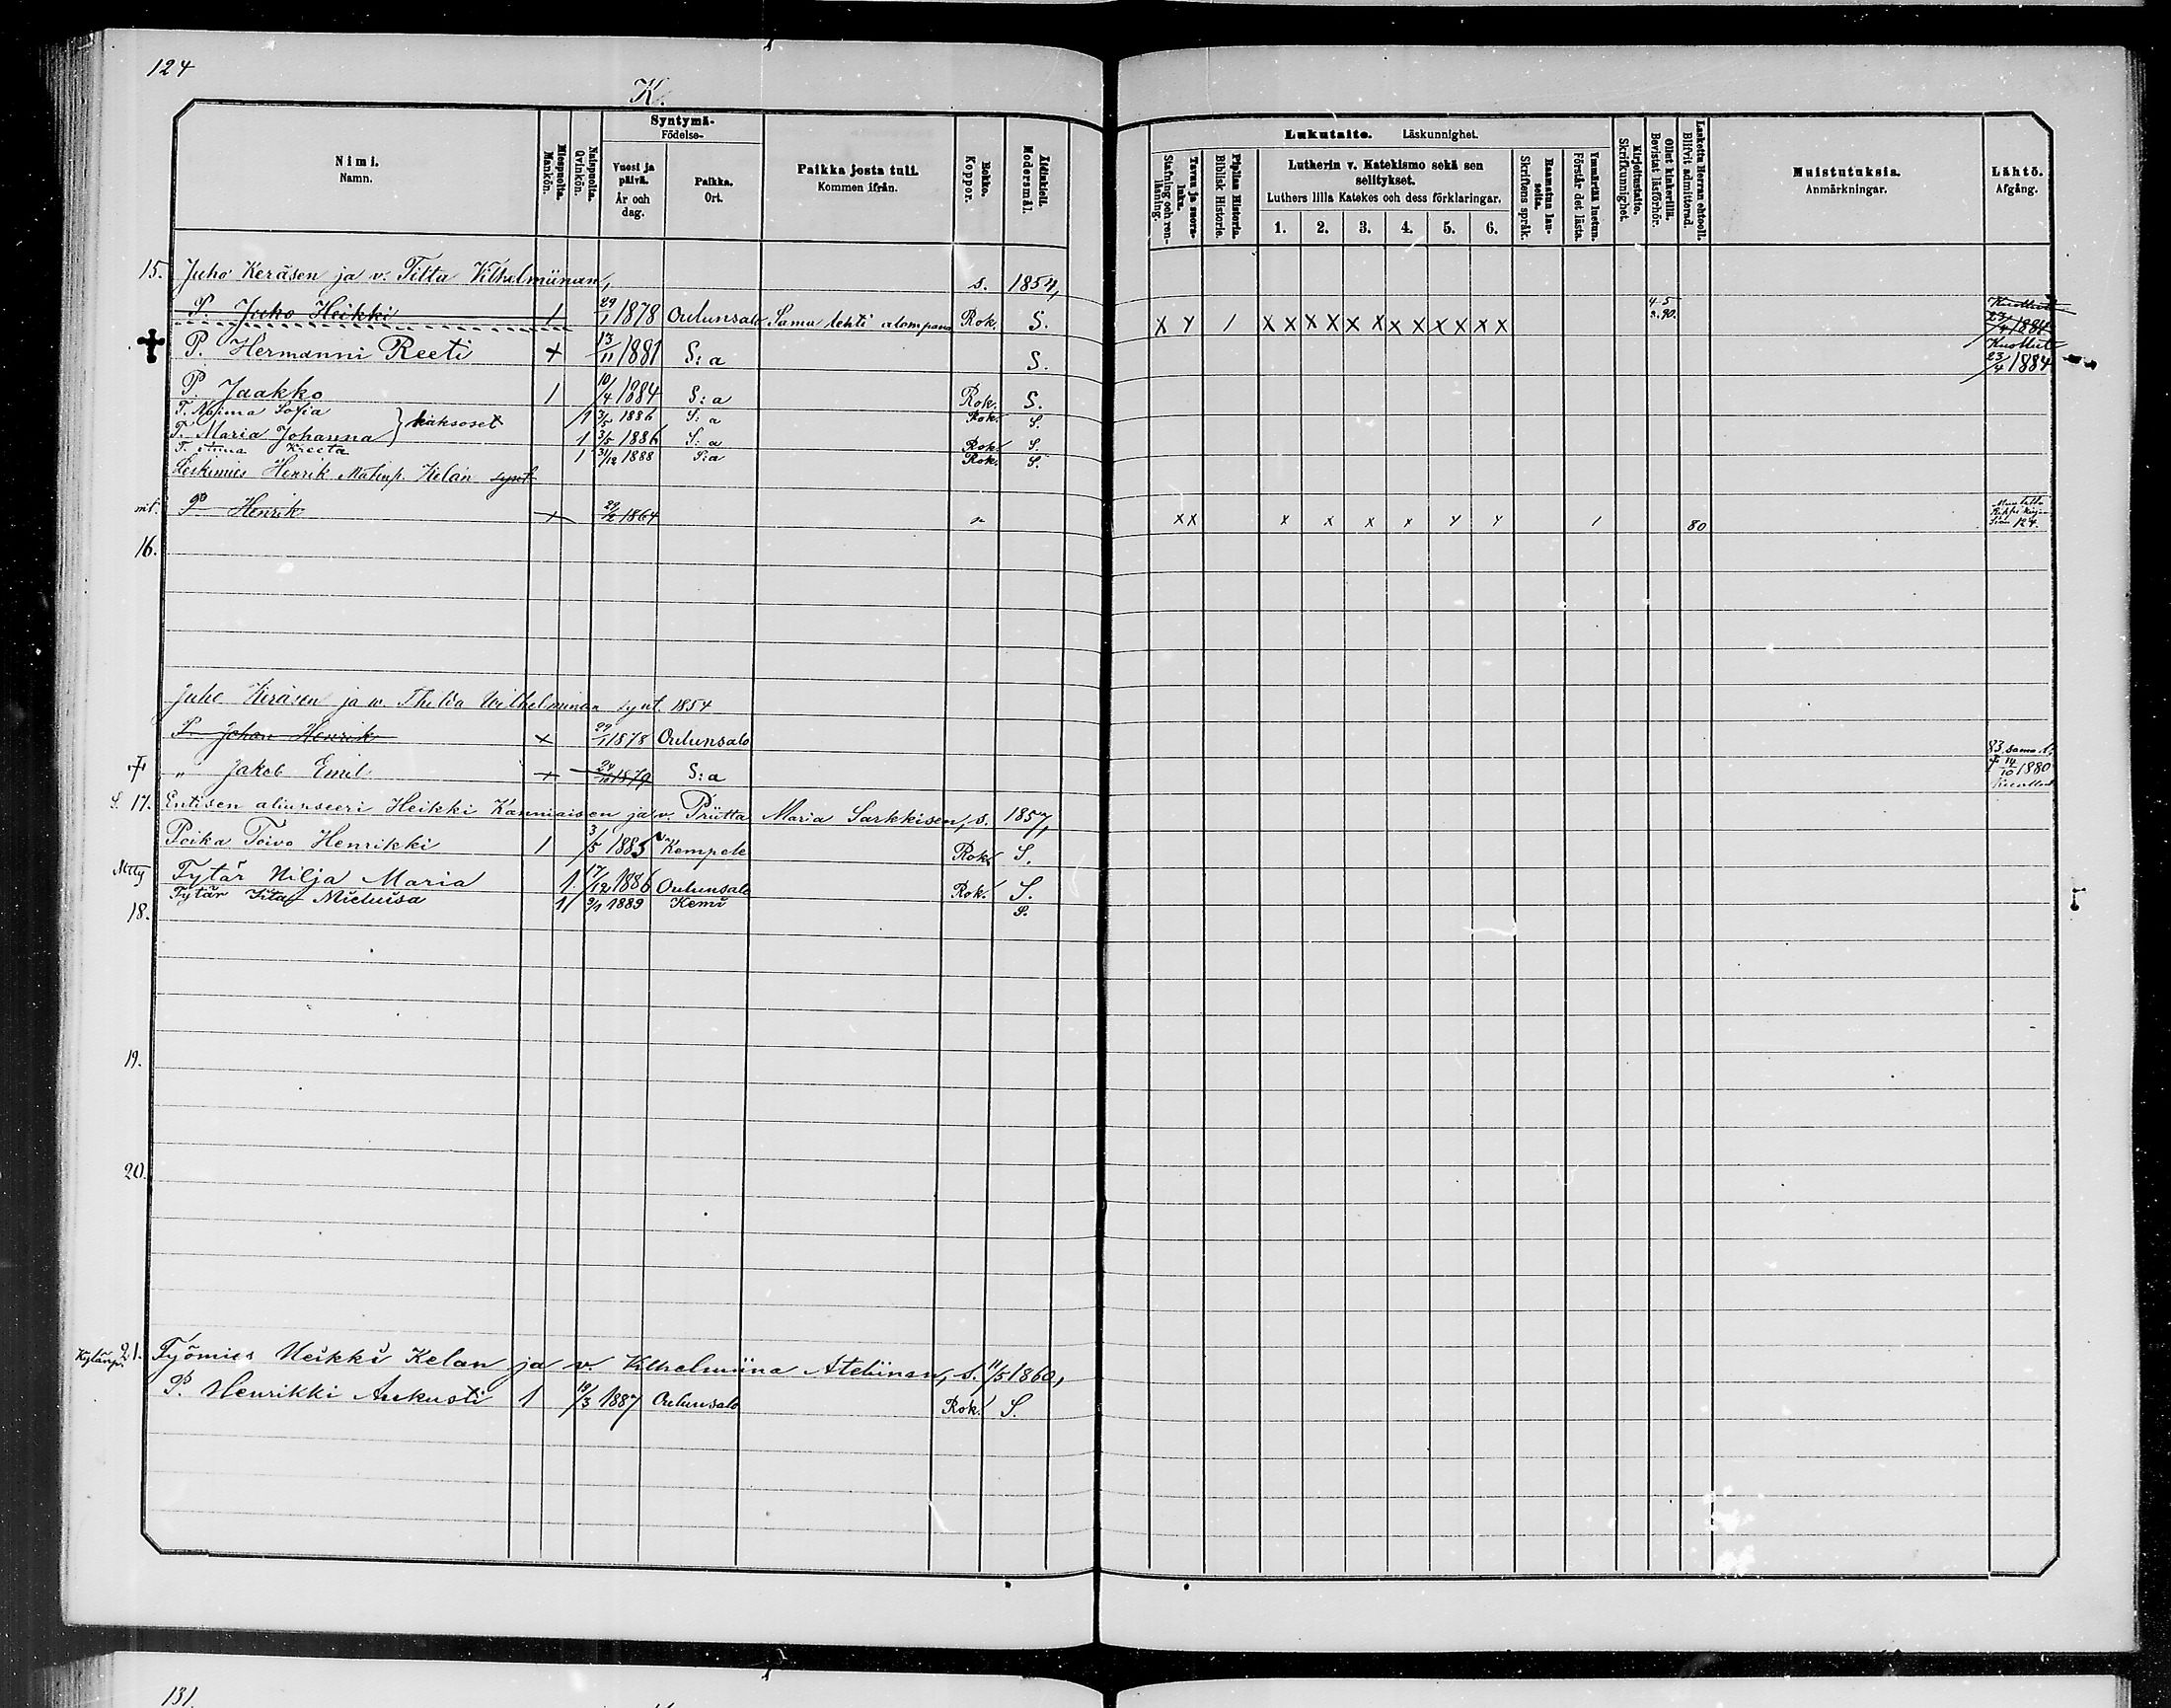 124
K.
Nimi.
Namn.
Miespuolta.
Mankön.
Naispuolta.
Qvinkön.
Syntymä-
Födelse-
Vuosi ja päivä.
År och dag.
Paikka.
Ort.
Paikka josta tuli.
Kommen ifrån.
Rokko.
Koppor.
Äidinkieli.
Modersmål.
Lukutaito. Läskunnighet.
Tavau ja suora-luku.
Stafning och ren-läsning.
Piplian Historia.
Biblisk Historie.
Lutherin v. Katekismo sekä sen selitykset.
Luthers lilla Katekes och dess förklaringar.
1. 2. 3. 4. 5. 6.
Raamatun lau-seita.
Skriftens språk.
Ymmärtää luetun.
Förstår det lästa.
Kirjoitustaito.
Skrifkunnighet.
Ollut kinkerillä.
Bevistat läsförhör.
Laskettu Herran ehtoolle.
Blifvit admitterad.
Muistutuksia.
Anmärkningar.
Lähtö.
Afgång.
15. Juho Keräsen ja v. Tilta Vilhelmiinan, s. 1854,
P. Juho Heikki 1 29/1 1878 Oulunsalo Sama lehti alempana Rok. S. X Y / X X X X X X X X X X X X 4-5 2.90. Kuollut 23/4 1884
P. Hermanni Reeti + 13/11 1881 S:a S. Kuollut 23/4 1884
P. Jaakko 1 10/4 1884 S:a Rok. S.
T. Naima Sofia } kaksoset 1 3/5 1886 S:a Rok. S.
T. Maria Johanna 1 3/5 1886 S:a Rok. S.
T. Kreeta 1 31/12 1888 S:a Rok. S.
Leskimies Henrik Matinp. Kelan synt.
P Henrik + 29/2 1864 x x x x x x y y / 80 124.
16.
Juho Keräsen ja w Thilda Wilhelminan synt. 1854
P. Johan Henrik x 29/1 1878 Oulunsalo 83 sama l.
" Jakob Emil + 24/10 1879 S:a † 14/10 1880
S. 17. Entisen aliunseeri Heikki Kanniaisen ja v. Priitta Maria Sarkkisen, s. 1857,
Poika Toivo Henrikki 1 3/5 1885 Kempele Rok. S.
Tytär Hilja Maria 1 17/12 1886 Oulunsalo Rok. S.
Tytär 1 9/1 1889 Kemi S.
18.
19.
20.
21. Työmies Heikki Kelan ja v. Vilhelmiina Ateliinan, s. 11/5 1860,
P. Henrikki Aukusti 1 19/3 1887 Oulunsalo Rok. S.
131.